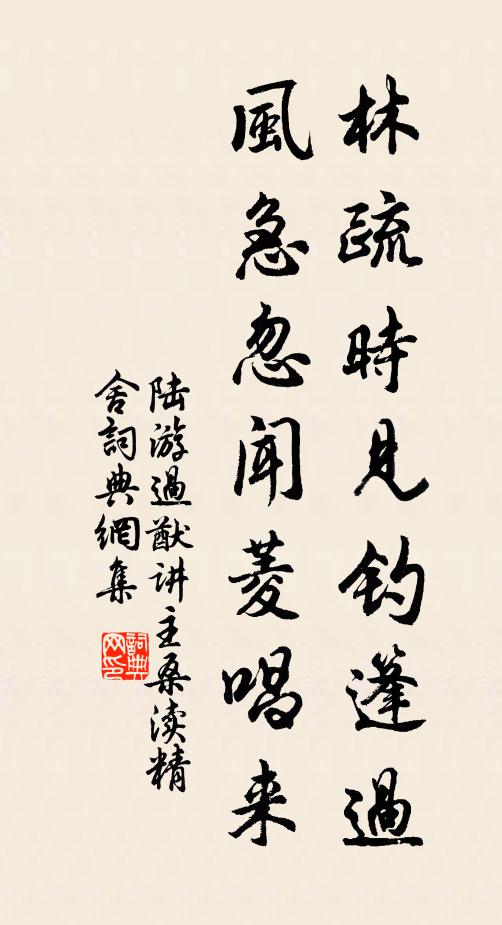 林疏時見釣篷過
風急忽聞菱唱来
陆游過猷讲主桑渎精
舍詞典網集
詞典网印